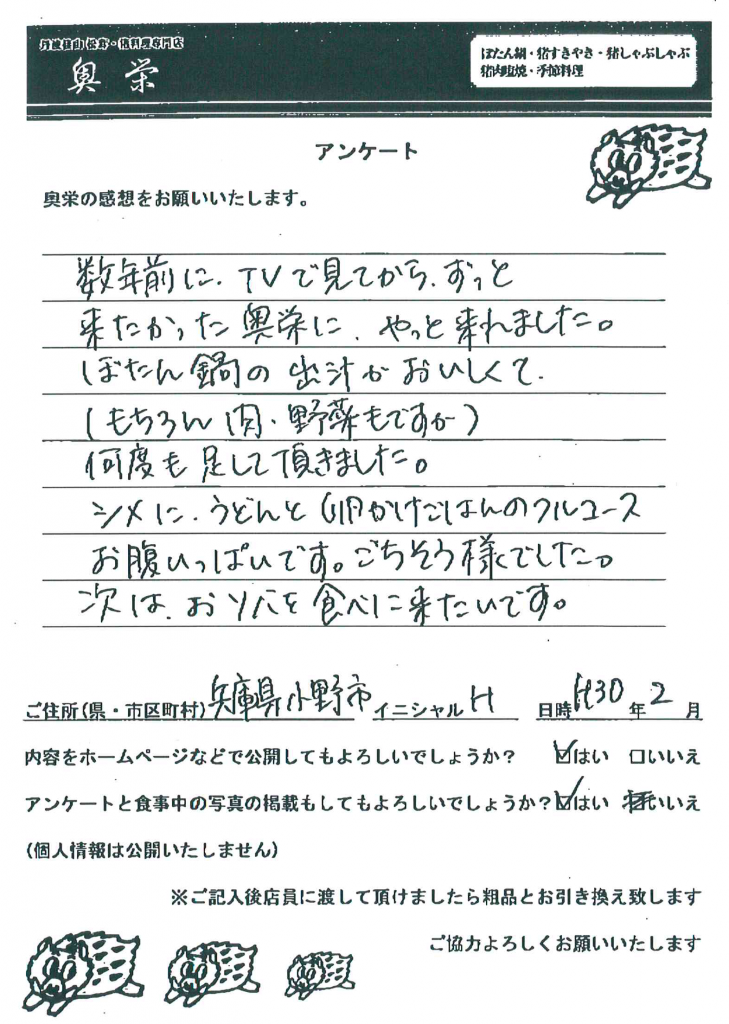 丹波篠山 松茸・猪料理専門店
奥栄
ぼたん鍋・猪すきやき・猪しゃぶしゃぶ
猪肉塩焼・季節料理
アンケート
奥栄の感想をお願いいたします。
数年前に、TVで見てから、ずっと
来たかった奥栄に、やっと来れました。
ぼたん鍋の出汁がおいしくて、
(もちろん肉・野菜もですが)
何度も足して頂きました。
シメに、うどんと卵かけごはんのフルコース
お腹いっぱいです。ごちそう様でした。
次は、おソバを食べに来たいです。
ご住所(県・市区町村)兵庫県小野市 イニシャル H 日時 H30 年 2 月
内容をホームページなどで公開してもよろしいでしょうか? ☑はい □いいえ
アンケートと食事中の写真の掲載もしてもよろしいでしょうか?☑はい いいえ
(個人情報は公開いたしません)
※ご記入後店員に渡して頂けましたら粗品とお引き換え致します
ご協力よろしくお願いいたします